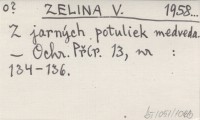 o? ZELINA V. 1958...
Z jarných potuliek medveďa.
— Ochr. Přír. 13, nr :
134-136.